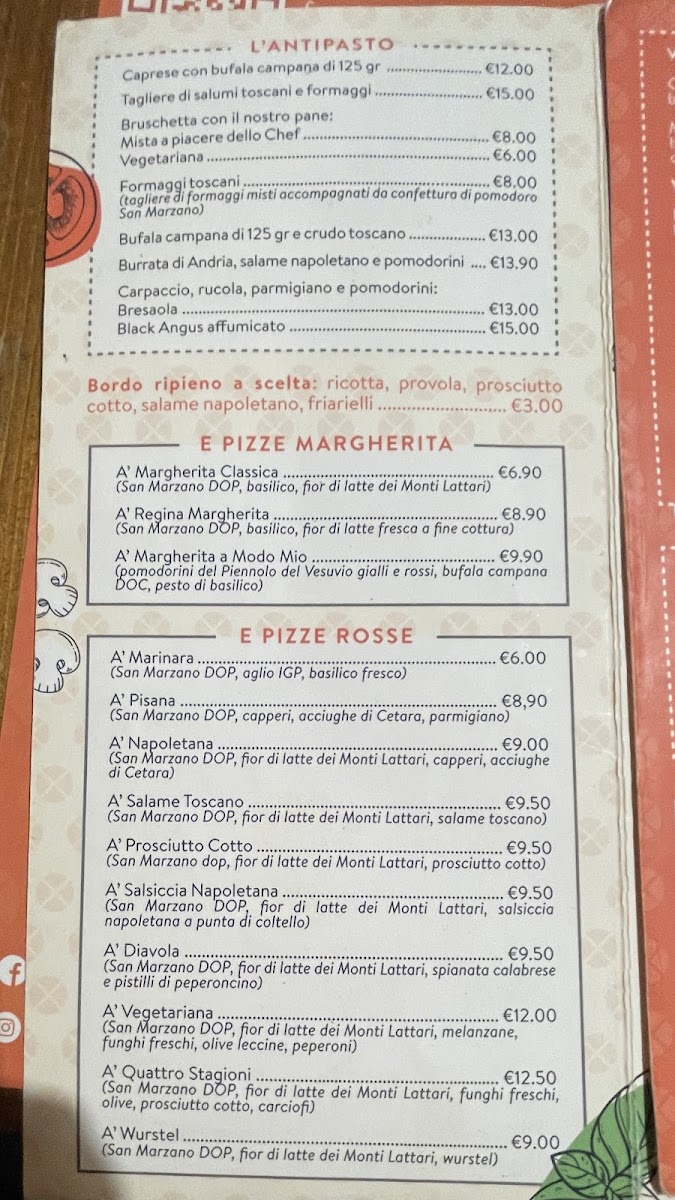 L'ANTIPASTO
Caprese con bufala campana di 125 gr ........................ €12.00
Tagliere di salumi toscani e formaggi ........................... €15.00
Bruschetta con il nostro pane:
Mista a piacere dello Chef ............................................... €8.00
Vegetariana ........................................................................ €6.00
Formaggi toscani ............................................................... €8.00
(tagliere di formaggi misti accompagnati da confettura di pomodoro
San Marzano)
Bufala campana di 125 gr e crudo toscano ................... €13.00
Burrata di Andria, salame napoletano e pomodorini .... €13.90
Carpaccio, rucola, parmigiano e pomodorini:
Bresaola ............................................................................. €13.00
Black Angus affumicato .................................................. €15.00
Bordo ripieno a scelta: ricotta, provola, prosciutto
cotto, salame napoletano, friarielli ............................ €3.00
E PIZZE MARGHERITA
A' Margherita Classica ...................................................... €6.90
(San Marzano DOP, basilico, fior di latte dei Monti Lattari)
A' Regina Margherita ......................................................... €8.90
(San Marzano DOP, basilico, fior di latte fresca a fine cottura)
A' Margherita a Modo Mio ............................................... €9.90
(pomodorini del Piennolo del Vesuvio gialli e rossi, bufala campana
DOC, pesto di basilico)
E PIZZE ROSSE
A' Marinara ............................................................................ €6.00
(San Marzano DOP, aglio IGP, basilico fresco)
A' Pisana ................................................................................. €8,90
(San Marzano DOP, capperi, acciughe di Cetara, parmigiano)
A' Napoletana ....................................................................... €9.00
(San Marzano DOP, fior di latte dei Monti Lattari, capperi, acciughe
di Cetara)
A' Salame Toscano ................................................................ €9.50
(San Marzano DOP, fior di latte dei Monti Lattari, salame toscano)
A' Prosciutto Cotto .............................................................. €9.50
(San Marzano dop, fior di latte dei Monti Lattari, prosciutto cotto)
A' Salsiccia Napoletana ........................................................ €9.50
(San Marzano DOP, fior di latte dei Monti Lattari, salsiccia
napoletana a punta di coltello)
A' Diavola ................................................................................ €9.50
(San Marzano DOP, fior di latte dei Monti Lattari, spianata calabrese
e pistilli di peperoncino)
A' Vegetariana ....................................................................... €12.00
(San Marzano DOP, fior di latte dei Monti Lattari, melanzane,
funghi freschi, olive leccine, peperoni)
A' Quattro Stagioni .............................................................. €12.50
(San Marzano DOP, fior di latte dei Monti Lattari, funghi freschi,
olive, prosciutto cotto, carciofi)
A' Wurstel ................................................................................ €9.00
(San Marzano DOP, fior di latte dei Monti Lattari, wurstel)